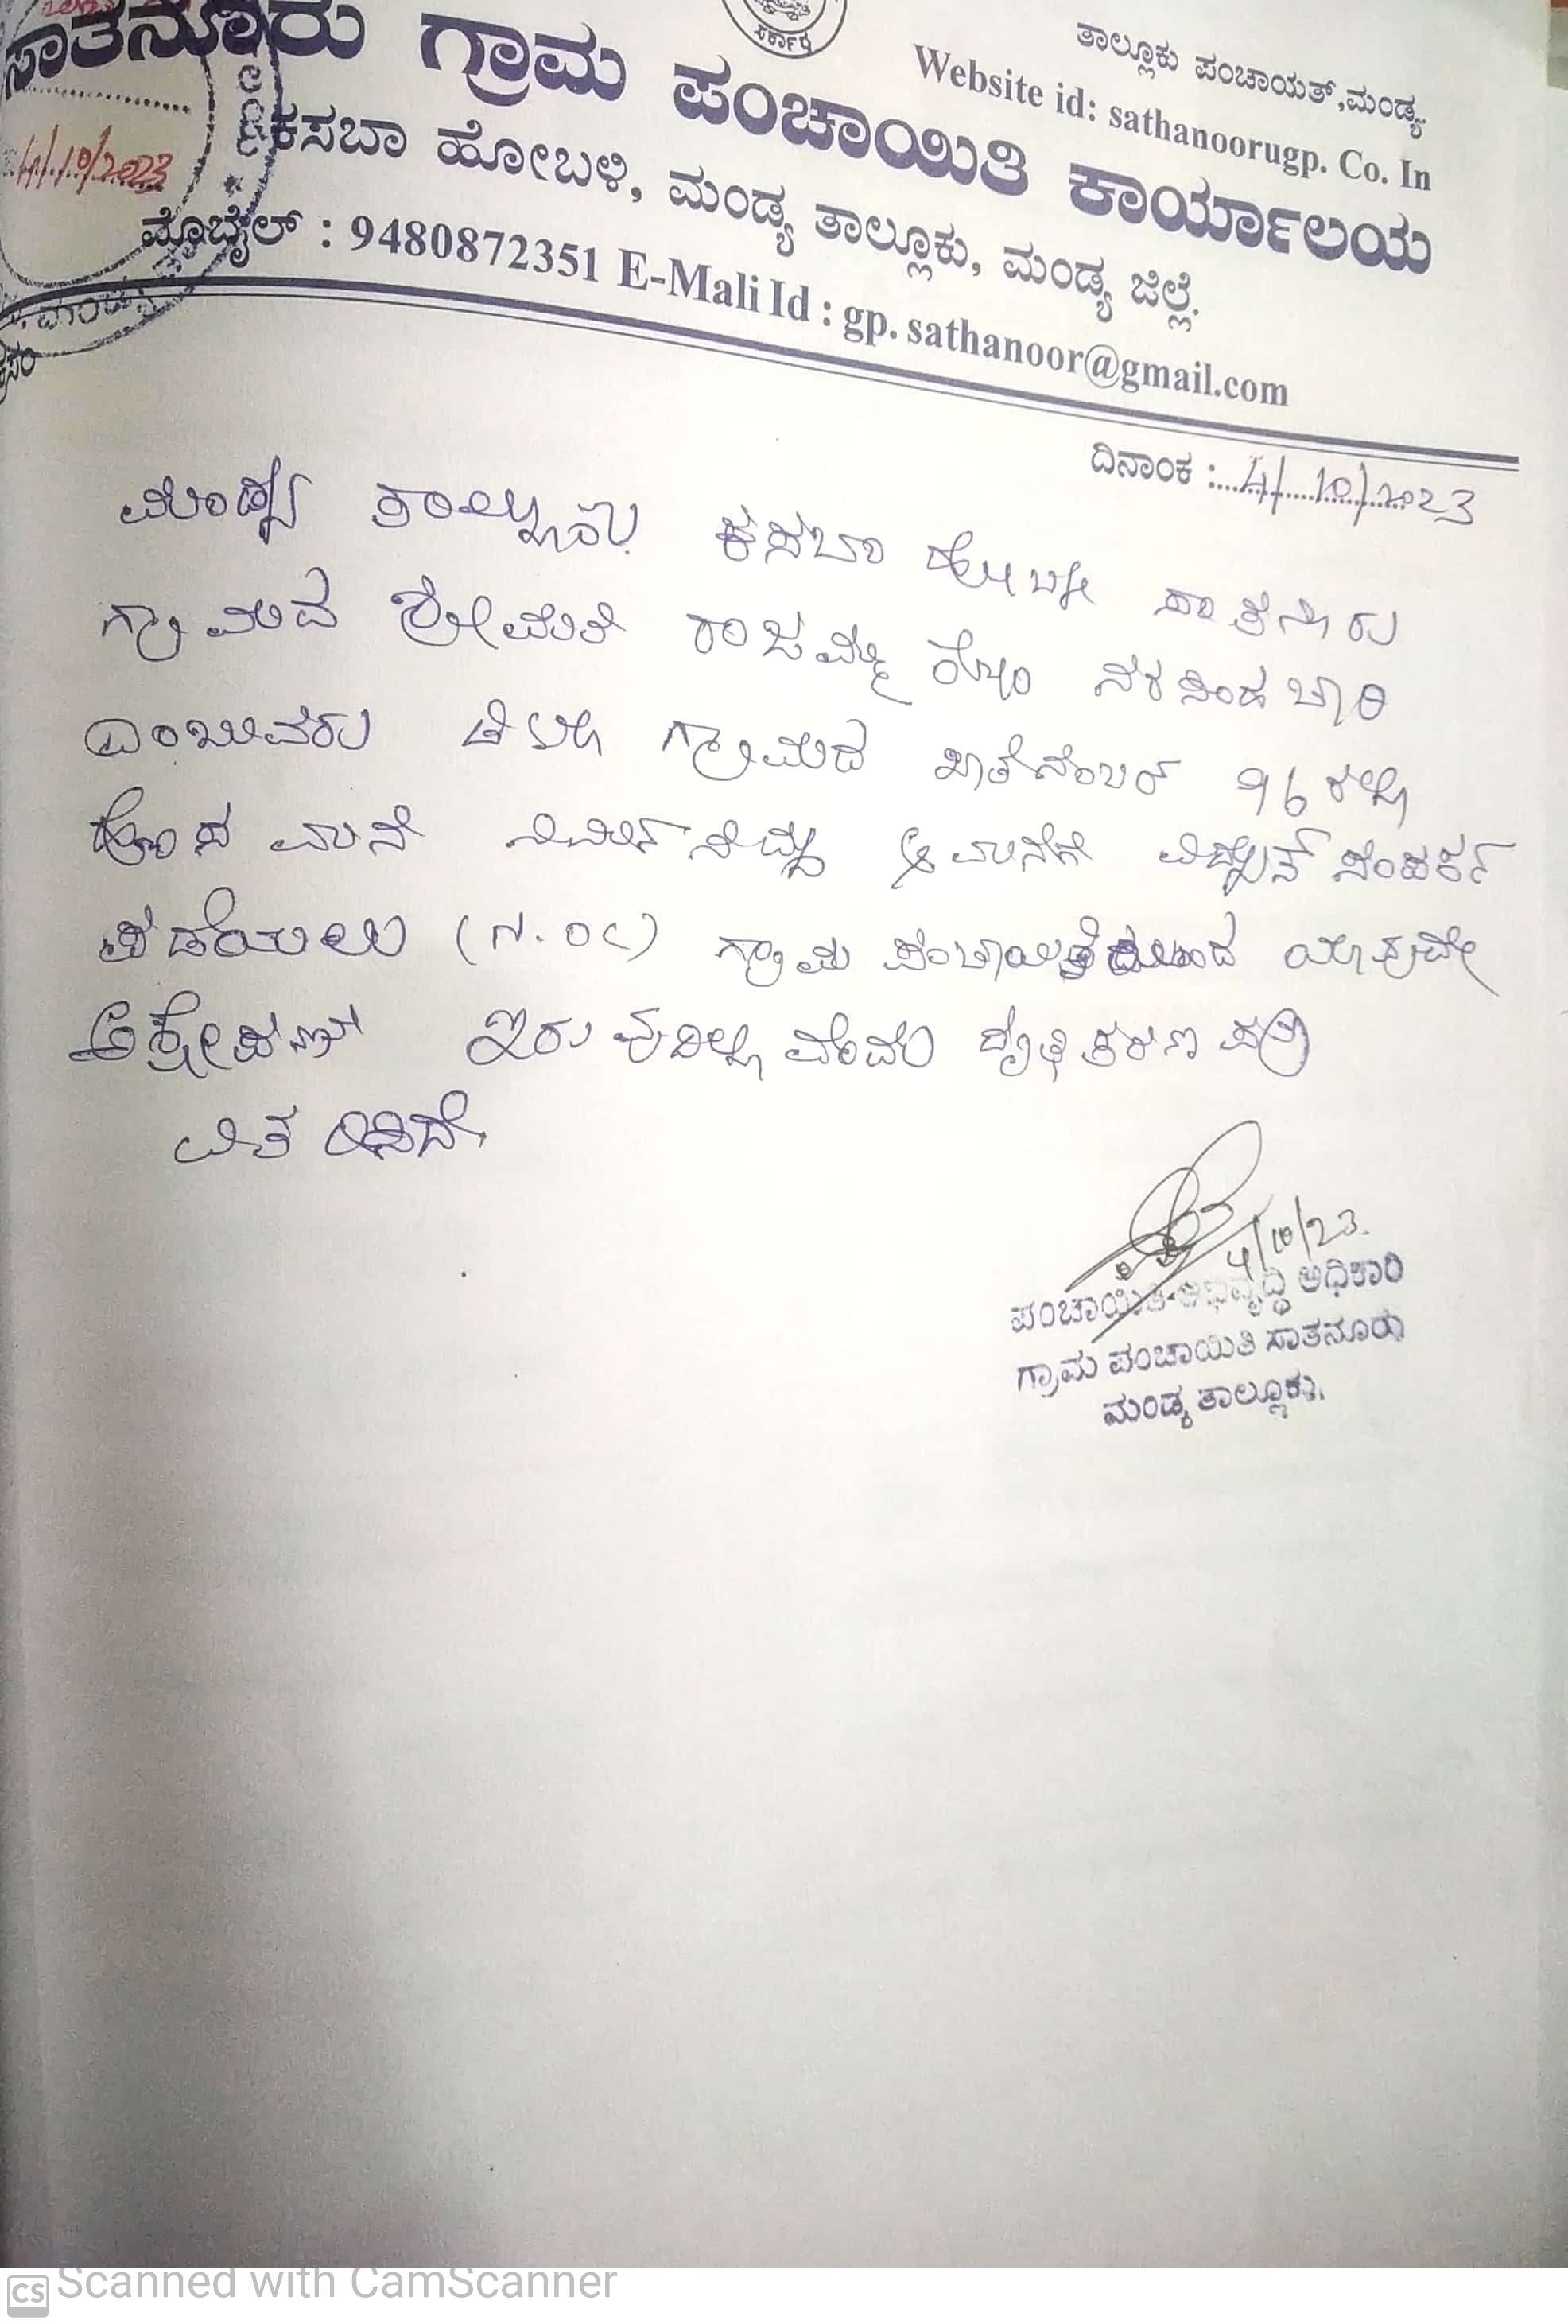 ಸರ್ಕಾರ
ತಾಲ್ಲೂಕು ಪಂಚಾಯತ್,ಮಂಡ್ಯ.
Website id: sathanoorugp. Co. In
ಸಾತನೂರು ಗ್ರಾಮ ಪಂಚಾಯಿತಿ ಕಾರ್ಯಾಲಯ
4/10/2023
ಕಸಬಾ ಹೋಬಳಿ, ಮಂಡ್ಯ ತಾಲ್ಲೂಕು, ಮಂಡ್ಯ ಜಿಲ್ಲೆ.
ಮೊಬೈಲ್ : 9480872351 E-Mali Id : gp. sathanoor@gmail.com
ದಿನಾಂಕ : 4/10/2023
ಮಂಡ್ಯ ತಾಲ್ಲೂಕು ಕಸಬಾ ಹೋಬಳಿ ಸಾತನೂರು
ಗ್ರಾಮದ ಶ್ರೀಮತಿ ರಾಜಮ್ಮ ಕೋಂ
ಎಂಬುವರು ಗ್ರಾಮದ ಖಾತೆನಂಬರ್ 96 ರಲ್ಲಿ
ಹೊಸ ಮನೆ ಆ ಮನೆಗೆ ವಿದ್ಯುತ್ ಸಂಪರ್ಕ
ಪಡೆಯಲು ಗ್ರಾಮ ಪಂಚಾಯಿತಿಯಿಂದ ಯಾವುದೇ
ಆಕ್ಷೇಪಣೆ ಇರುವುದಿಲ್ಲ ವೆಂದು ದೃಢೀಕರಣ ಪತ್ರ
ವಿತರಿಸಿದೆ.
4/10/23.
ಪಂಚಾಯಿತಿ ಅಭಿವೃದ್ಧಿ ಅಧಿಕಾರಿ
ಗ್ರಾಮ ಪಂಚಾಯಿತಿ ಸಾತನೂರು
ಮಂಡ್ಯ ತಾಲ್ಲೂಕು.
CS Scanned with CamScanner